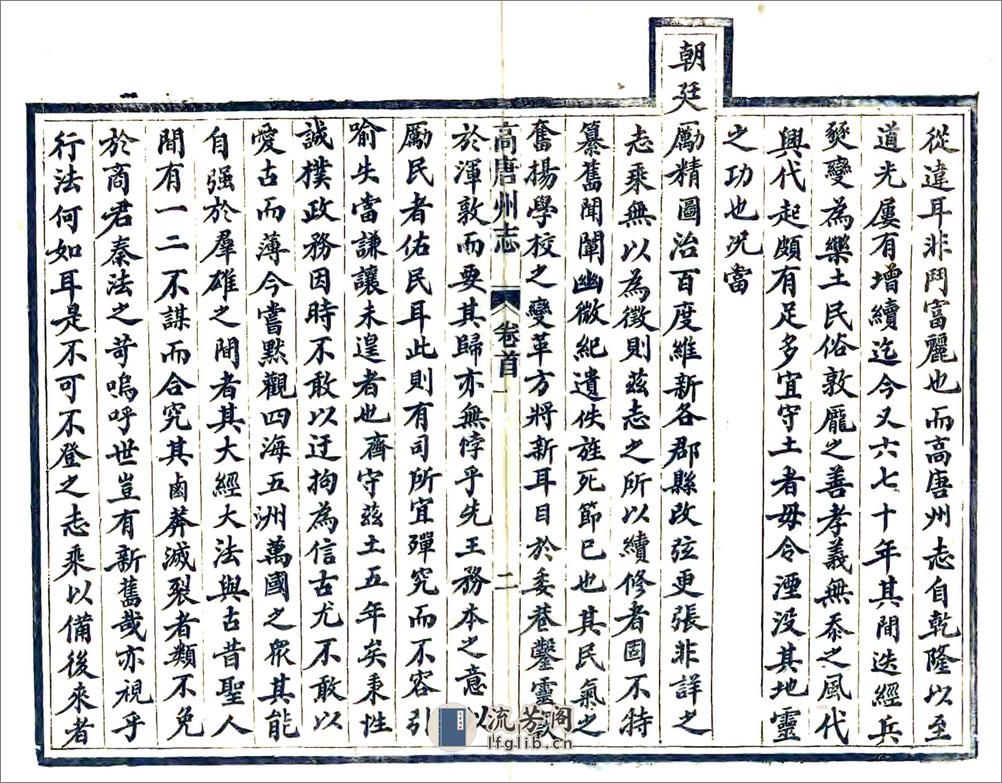 從違耳非鬥富麗也而高唐州志自乾隆以至
道光屢有增續迄今又六七十年其間迭經兵
燹變為樂土民俗敦龐之善孝義無忝之風代
興代起頗有足多宜守土者毋令湮没其地靈
之功也況當
朝廷勵精圖治百度維新各郡縣改弦更張非詳之
志乘無以為徵則茲志之所以續修者固不特
纂舊聞闡幽微紀遺佚旌死節已也其民氣之
奮揚學校之變革方將新耳目於委巷鑿靈
高唐州志 卷首 一 二
於渾敦而要其歸亦無悖乎先王務本之意以
勵民者佑民耳此則有司所宜殫究而不容引
喻失當謙讓未遑者也齊守茲土五年矣秉性
誠樸政務因時不敢以迂拘為信古尤不敢以
愛古而薄今嘗默觀四海五洲萬國之衆其能
自强於羣雄之間者其大經大法與古昔聖人
間有一二不謀而合究其鹵莽滅裂者類不免
於商君秦法之苛嗚呼世豈有新舊哉亦視乎
行法何如耳是不可不登之志乘以備後來者
流芳阁
lfglib.cn